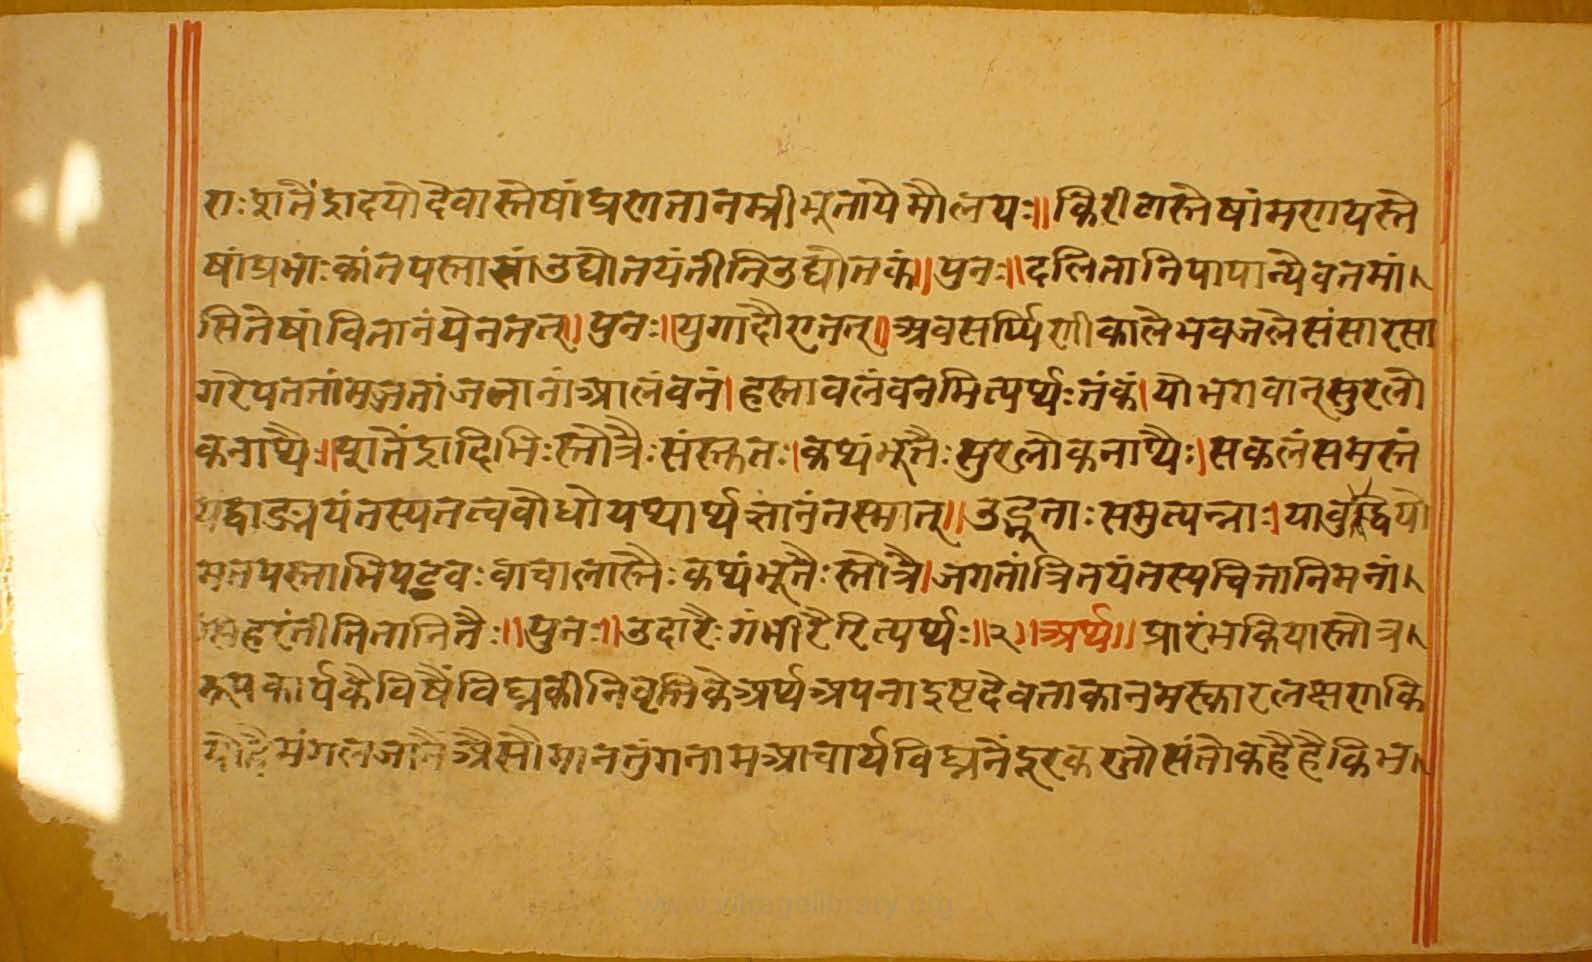 राः शतेंद्रादयो देवास्तेषां प्रणतानम्रीभूतायेमौलयः॥ किरीटास्तेषांमणयस्ते
षांप्रभाः कांतयस्तासांउद्योतयंतीतिउद्योतकं॥ पुनः॥दलितानिपापान्येवतमां
सितेषांवितानंयेनतत्॥ पुनः॥युगादौएतत्॥अवसर्प्पिणीकालेभवजलेसंसारसा
गरेपततांमज्जतांजनानांआलंवनं।हस्तावलंवनमित्यर्थ्यःतंकं।योभगवान्सुरलो
कनाथ्यैः॥भूतेंद्रादिभिःस्तोत्रैःसंस्कृतः।कथ्यंभूतैःसुरलोकनाथ्यैः।सकलंसमस्तं
यद्वाङ्मयंतस्यतत्ववोधोयथ्यार्थ्यज्ञानंतस्मात्॥उद्भूताःसमुत्पन्नाः।यावुद्धियो
मतयस्ताभिपटुवःवाचालास्तैःकथ्यंभूतैःस्तोत्रै।जगतांत्रितयंतस्यचित्तानिमनां
हरंतीतितानितैः॥पुनः॥उदारैःगंभीरैरित्यर्थ्यः॥२॥अर्थ्य॥प्रारंभकियास्तोत्र
रूपकार्यकैविषैंविघ्नकीनिवृत्तिकेअर्थ्यअपनाइष्टदेवताकानमस्कारलक्षणकि
यौहैमंगलजानैंअैसौमानतुंगनामआचार्यविघ्ननेंदूरकरतोसंतोकहैहैकिभ
www.vitragelibrary.org